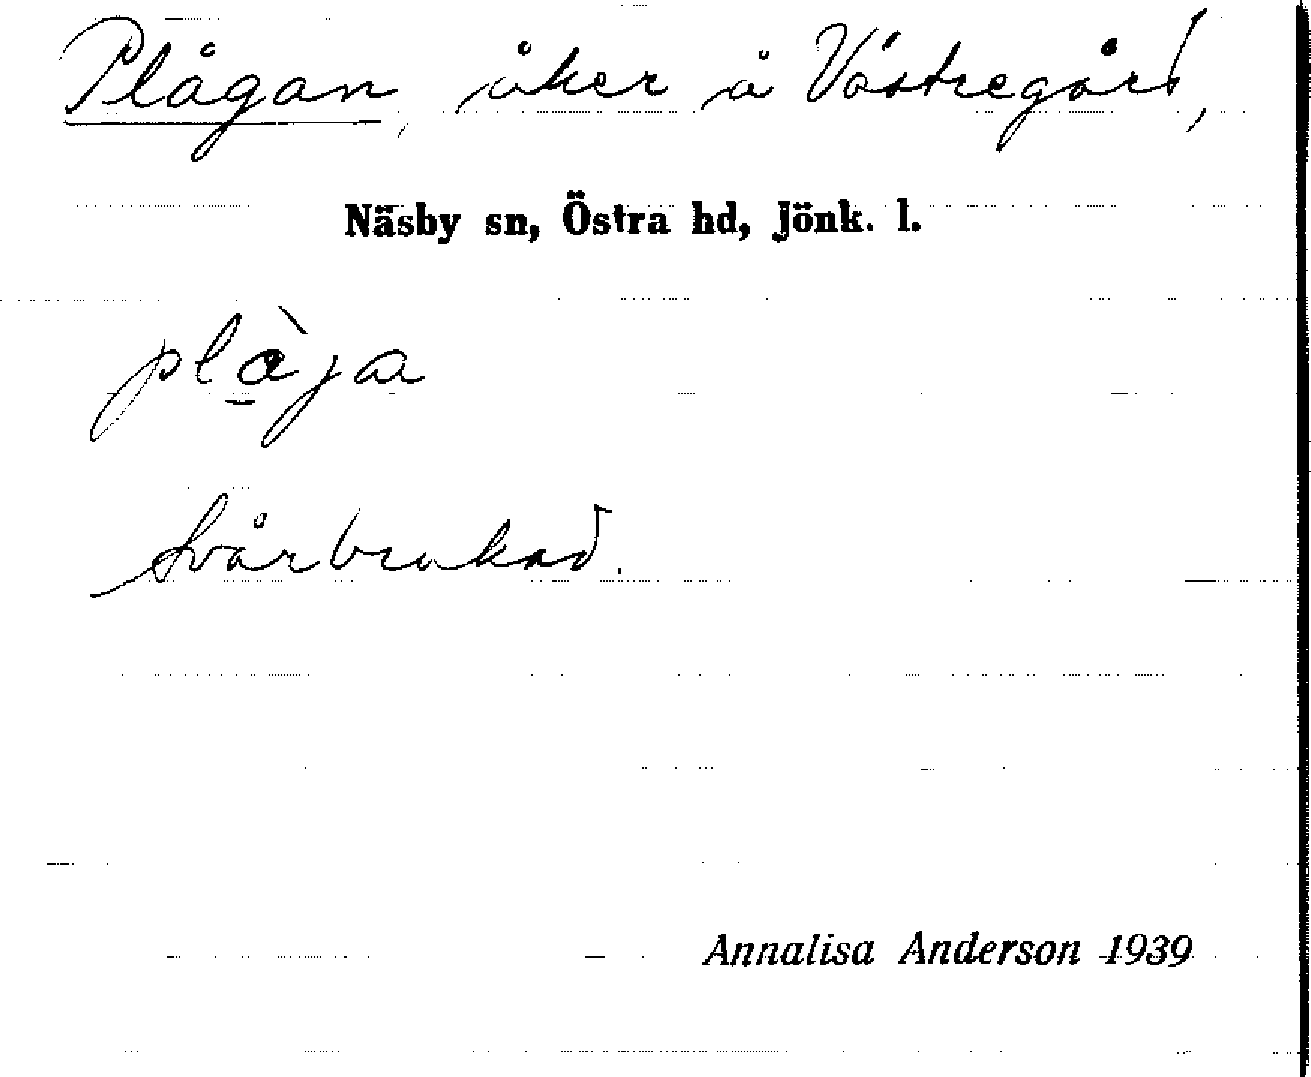 Plågan, åker å Västregård,
Näsby sn, Östra hd, Jönk. l.
plàja
Svårbrukad.
Annalisa Anderson 1939